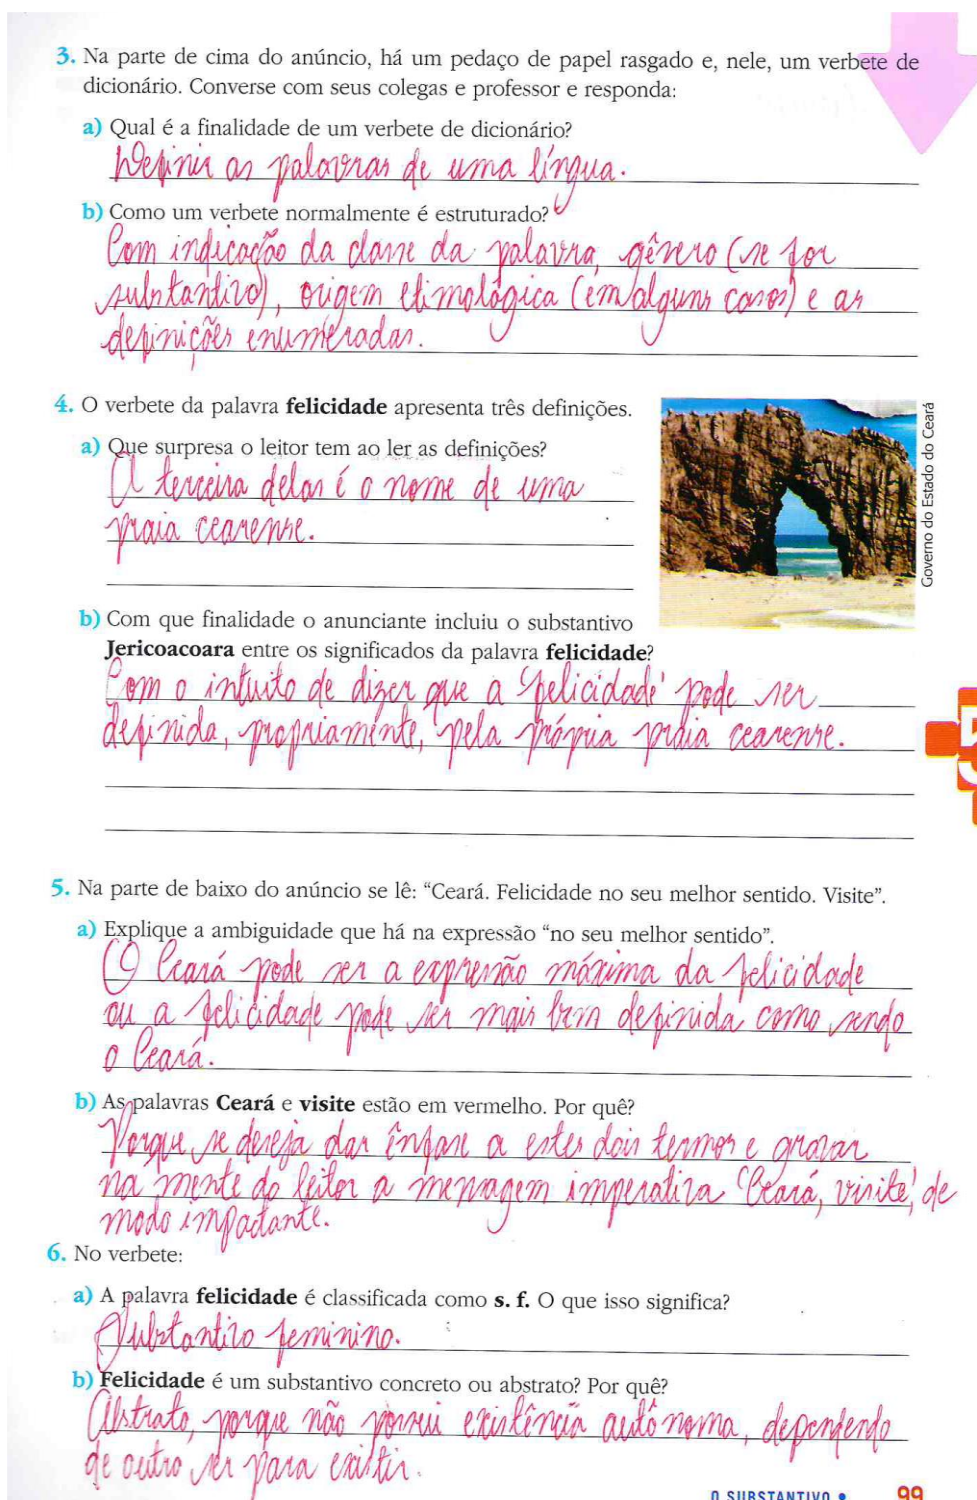 3. Na parte de cima do anúncio, há um pedaço de papel rasgado e, nele, um verbete de
dicionário. Converse com seus colegas e professor e responda:
a) Qual é a finalidade de um verbete de dicionário?
Definir as palavras de uma língua.
b) Como um verbete normalmente é estruturado?
Com indicação da classe da palavra, gênero (se for
substantivo), origem etimológica (em alguns casos) e as
definições enumeradas.
4. O verbete da palavra felicidade apresenta três definições.
a) Que surpresa o leitor tem ao ler as definições?
A terceira delas é o nome de uma
praia cearense.
Governo do Estado do Ceará
b) Com que finalidade o anunciante incluiu o substantivo
Jericoacoara entre os significados da palavra felicidade?
Com o intuito de dizer que a 'felicidade' pode ser
definida, propriamente, pela própria praia cearense.
5
5. Na parte de baixo do anúncio se lê: “Ceará. Felicidade no seu melhor sentido. Visite”.
a) Explique a ambiguidade que há na expressão “no seu melhor sentido”.
O Ceará pode ser a expressão máxima da felicidade
ou a felicidade pode ser mais bem definida como sendo
o Ceará.
b) As palavras Ceará e visite estão em vermelho. Por quê?
Porque se deseja dar ênfase a estes dois termos e gravar
na mente do leitor a mensagem imperativa 'Ceará, visite', de
modo impactante.
6. No verbete:
a) A palavra felicidade é classificada como s. f. O que isso significa?
Substantivo feminino.
b) Felicidade é um substantivo concreto ou abstrato? Por quê?
Abstrato, porque não possui existência autônoma, dependendo
de outro ser para existir.
O SUBSTANTIVO • 99